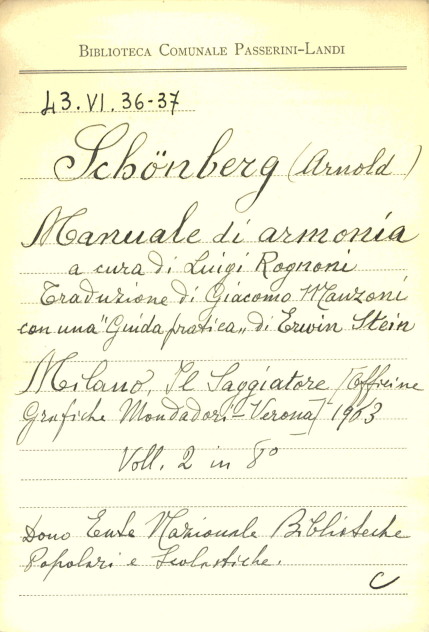 BIBLIOTECA COMUNALE PASSERINI-LANDI
L3.VI.36-37
Schönberg (Arnold)
Manuale di armonia
a cura di Luigi Rognoni
Traduzione di Giacomo Manzoni
con una "Guida pratica„ di Erwin Stein
Milano, Il Saggiatore [Officine
Grafiche Mondadori-Verona] 1963
Voll. 2 in 8°
Dono Ente Nazionale Biblioteche
Popolari e Scolastiche.
C